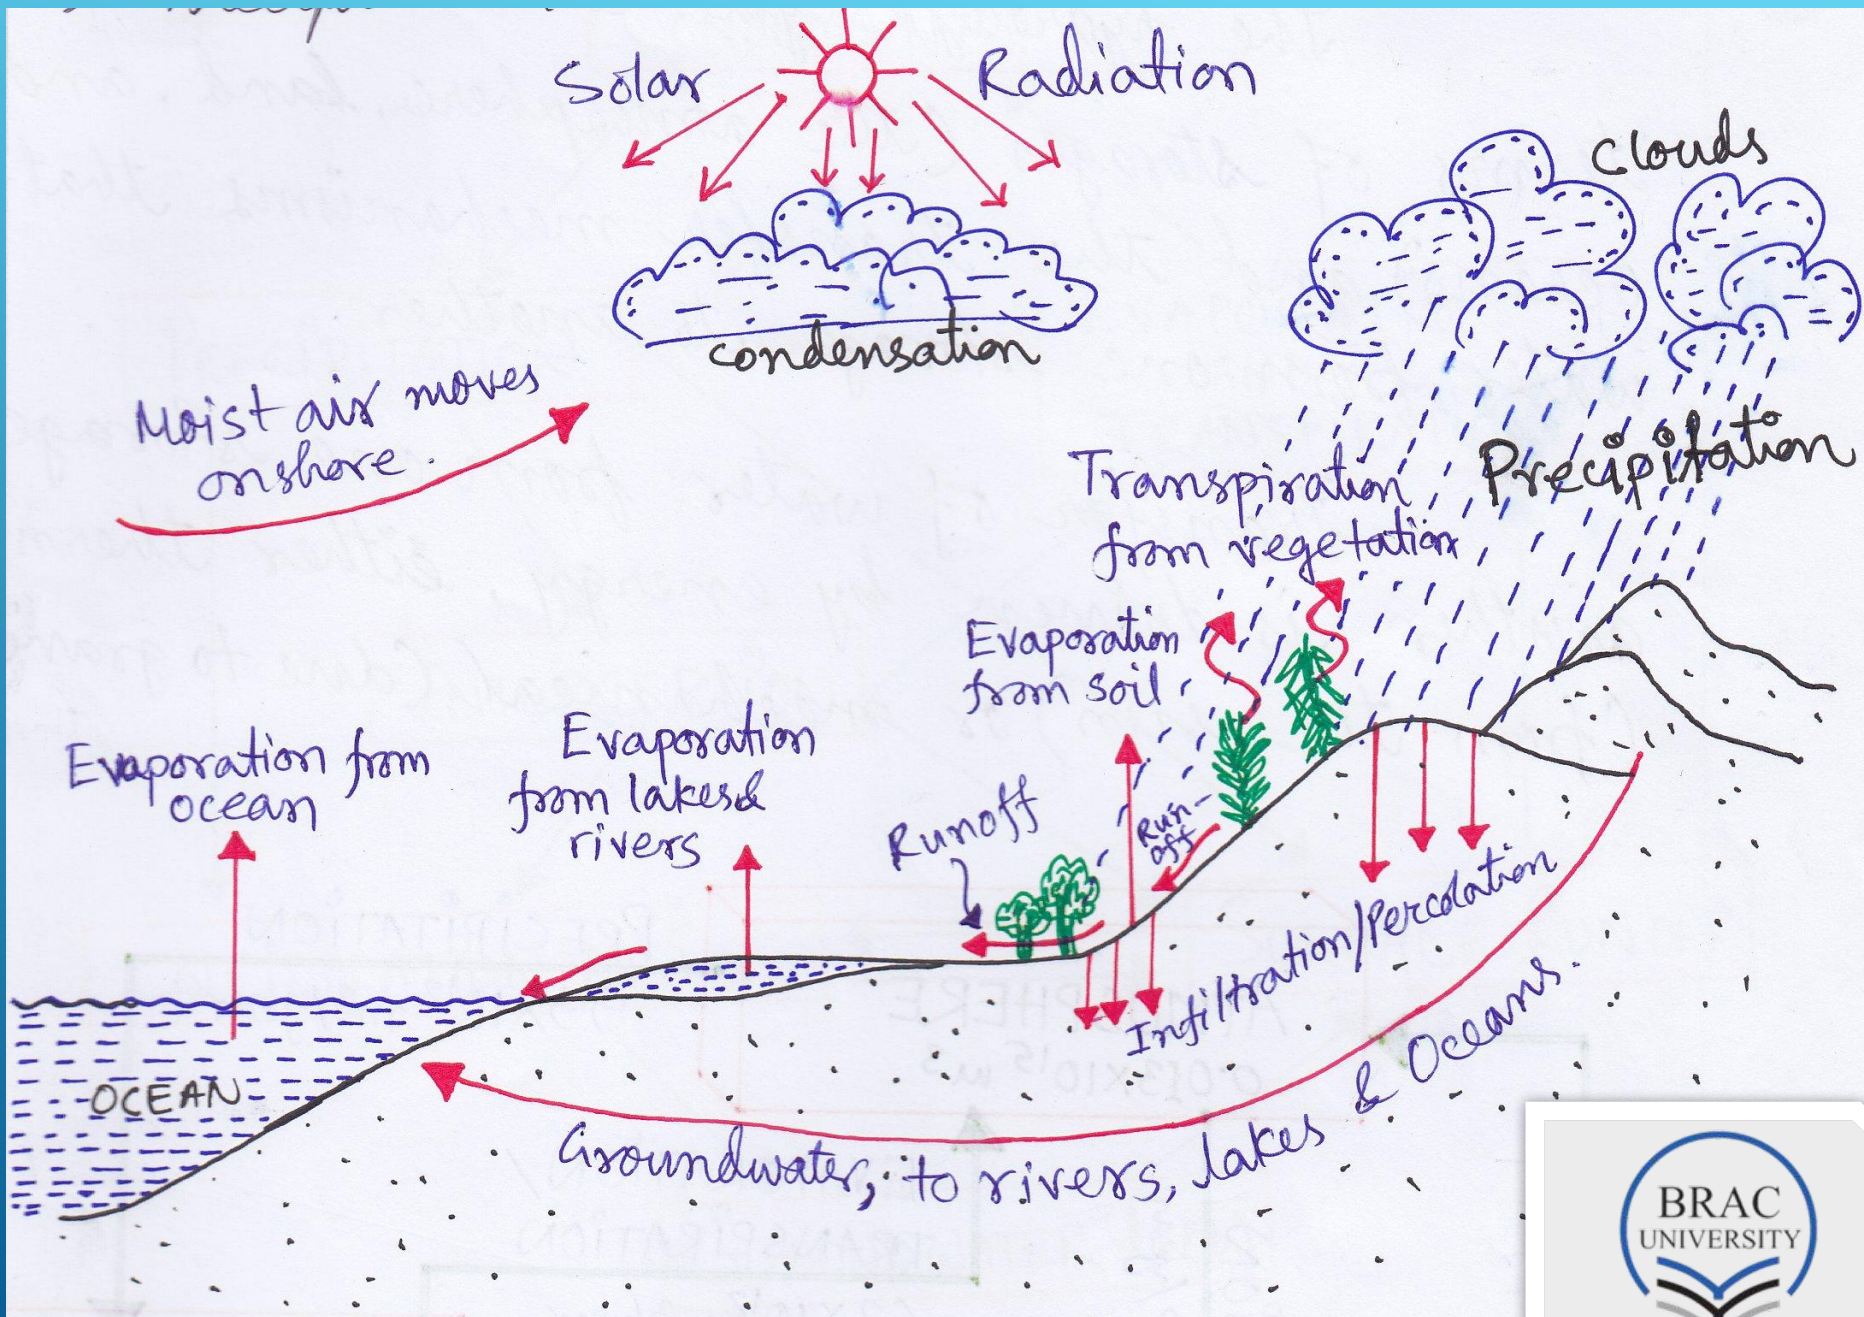 Solar Radiation
clouds
condensation
Moist air moves
onshore.
Precipitation
Transpiration
from vegetation
Evaporation
from soil
Evaporation from
ocean
Evaporation
from lakes &
rivers
Runoff
Run-
off
Infiltration/Percolation
OCEAN
Groundwater, to rivers, lakes & Oceans.
BRAC
UNIVERSITY